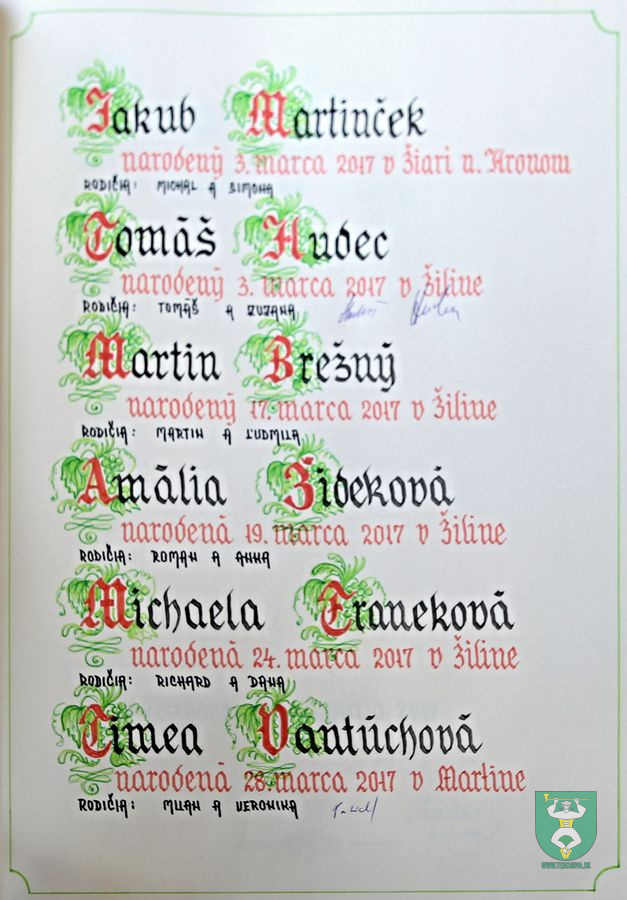 Jakub Martinček
narodený 3. marca 2017 v Žiari n. Hronom
RODIČIA: MICHAL A SIMONA
Tomáš Hudec
narodený 3. marca 2017 v Žiline
RODIČIA: TOMÁŠ A ZUZANA
Martin Brežný
narodený 17. marca 2017 v Žiline
RODIČIA: MARTIN A ĽUDMILA
Amália Žideková
narodená 19. marca 2017 v Žiline
RODIČIA: ROMAN A ANNA
Michaela Franeková
narodená 24. marca 2017 v Žiline
RODIČIA: RICHARD A DANA
Timea Vantúchová
narodená 28. marca 2017 v Martine
RODIČIA: MILAN A VERONIKA
WWW.TERCHOVA.SK